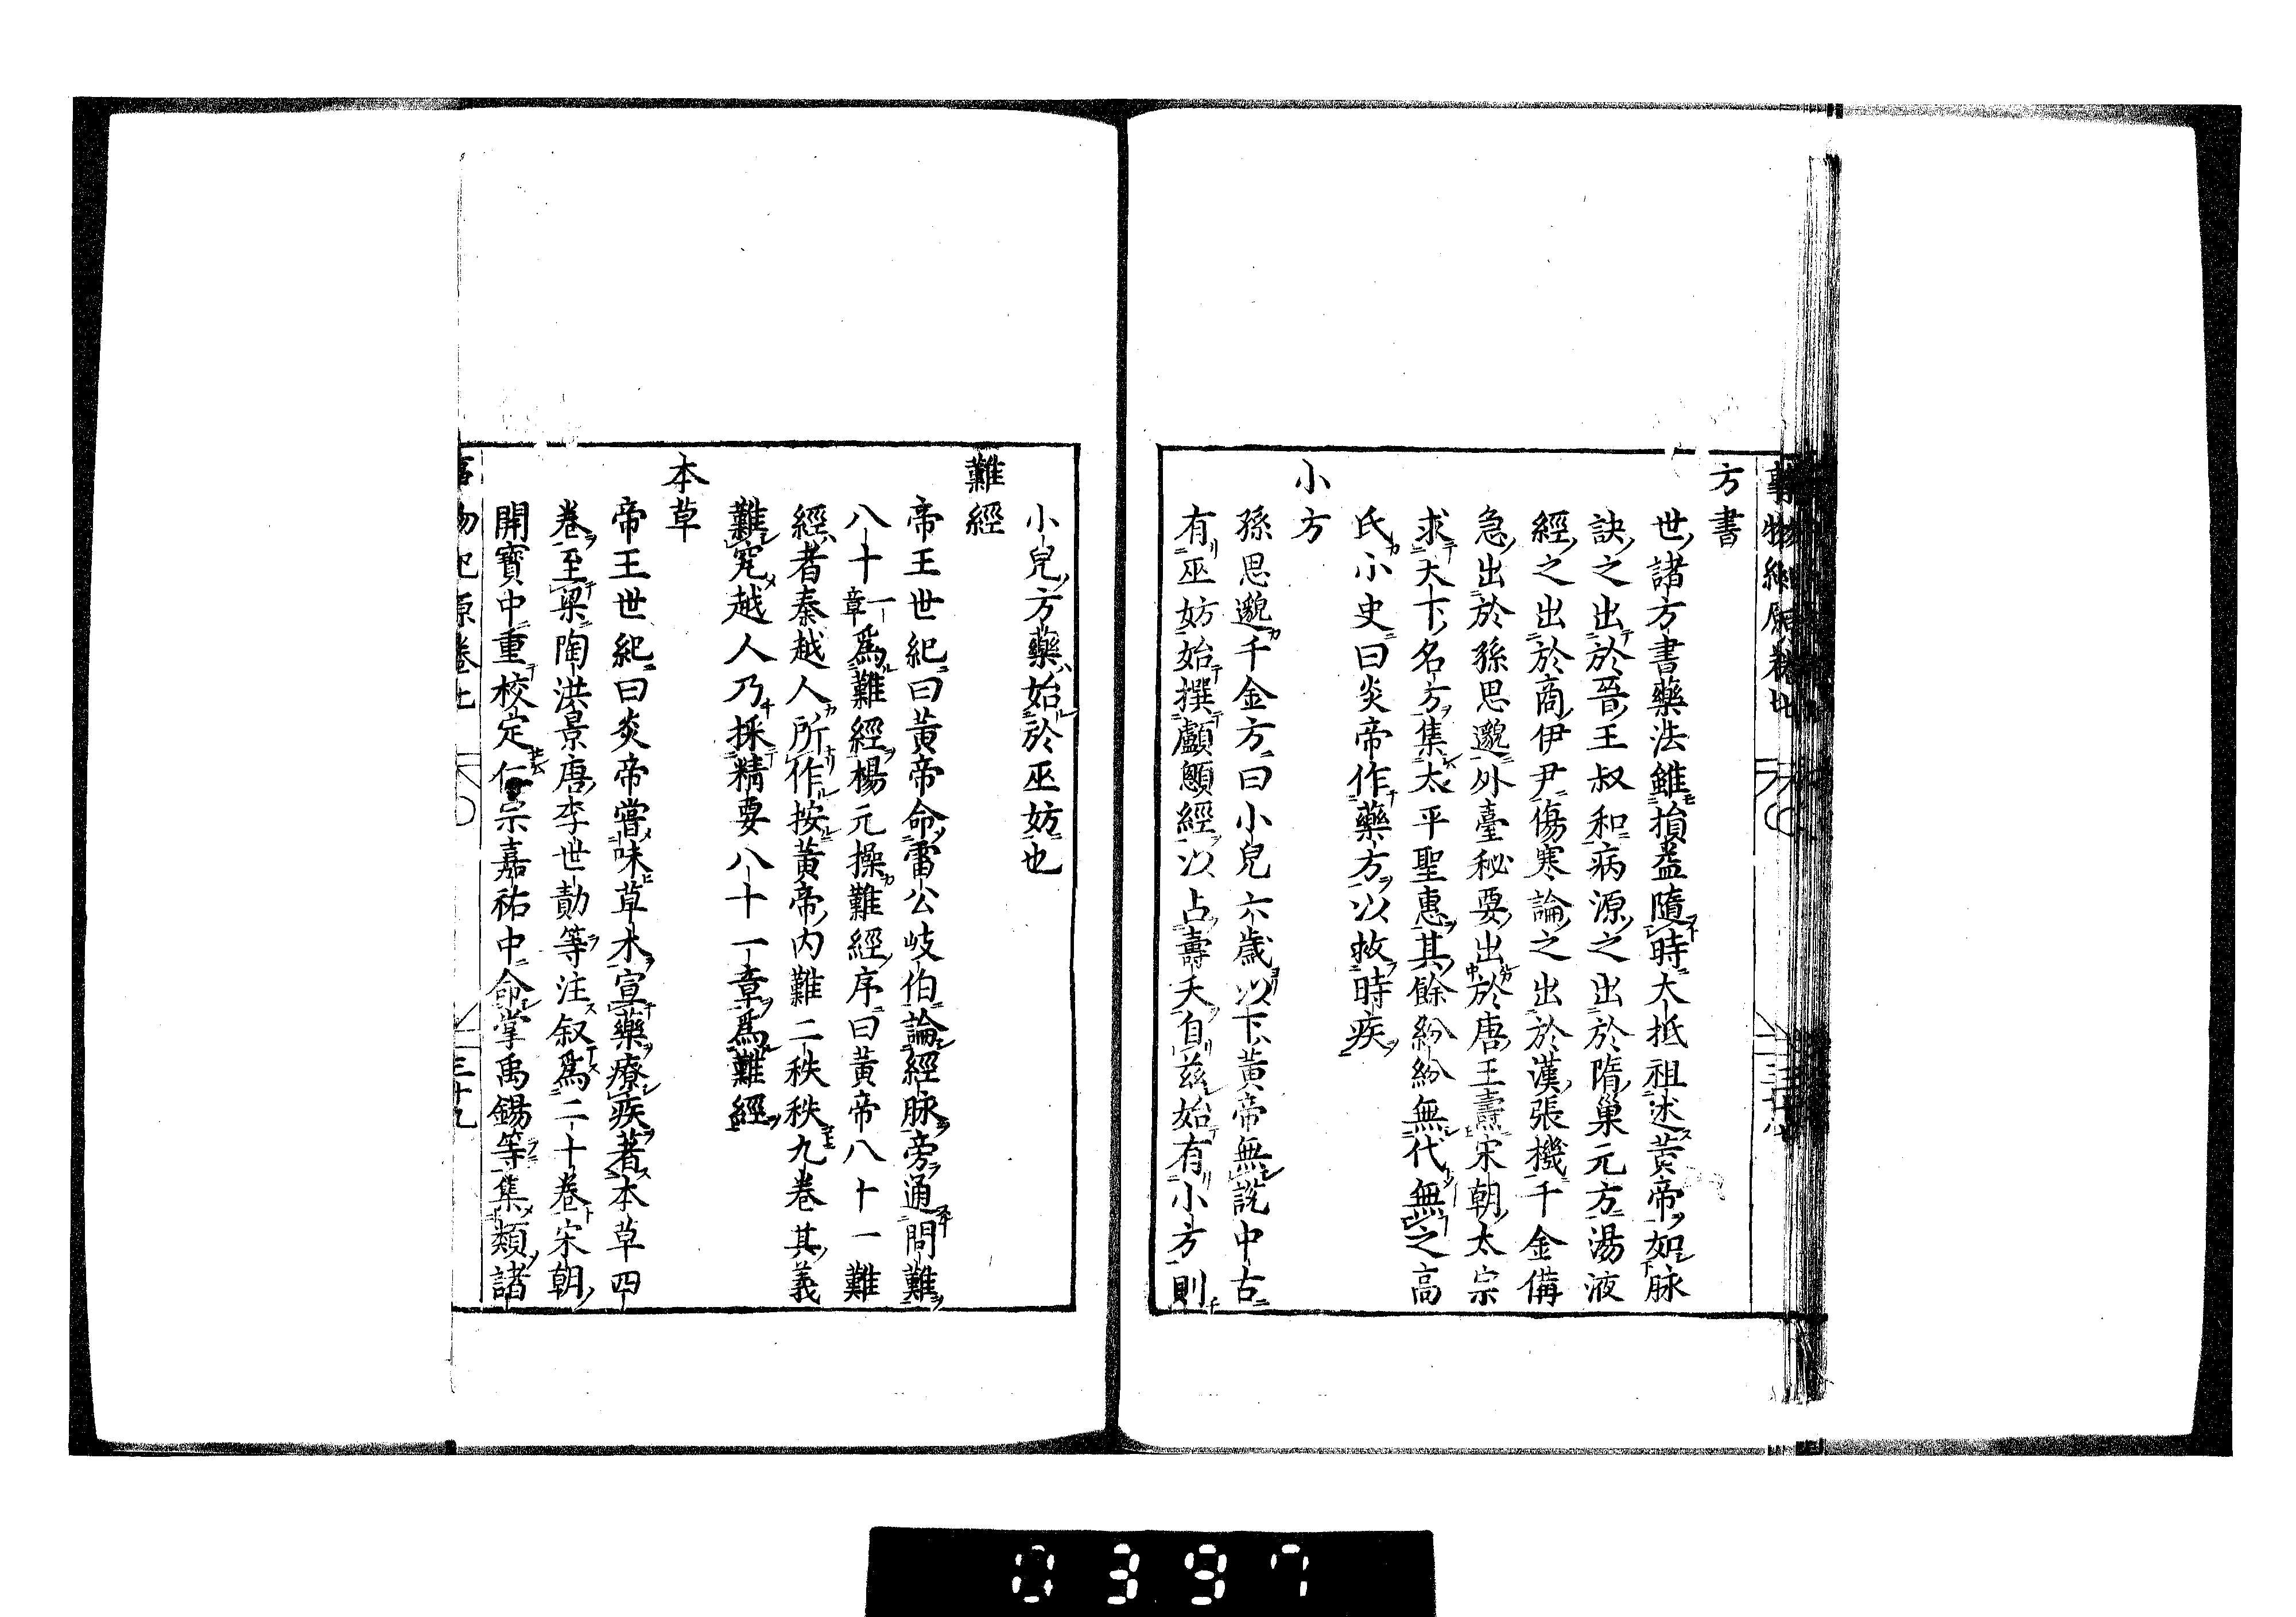 方書
世諸方書藥法雖損益隨時大抵祖述黄帝如脉
訣之出於晉王叔和病源之出於隋巢元方湯液
經之出於商伊尹傷寒論之出於漢張機千金備
急出於孫思邈外臺秘要出於唐王燾宋朝太宗
求天下名方集太平聖惠其餘紛紛無代無之高
氏小史曰炎帝作藥方以救時疾
小方
孫思邈千金方曰小兒六歲以下黄帝無說中古
有巫妨始撰顱顖經以占壽夭自兹始有小方則
小兒方藥始於巫妨也
難經
帝王世紀曰黄帝命雷公岐伯論經脉旁通問難
八十一章爲難經楊元操難經序曰黄帝八十一難
經者秦越人所作按黄帝内難二秩秩九卷其義
難究越人乃採精要八十一章爲難經
本草
帝王世紀曰炎帝嘗味草木宣藥療疾著本草四
卷至梁陶洪景唐李世勣等注叙爲二十卷宋朝
開寶中重校定仁宗嘉祐中命掌禹錫等集類諸
三十九
0397